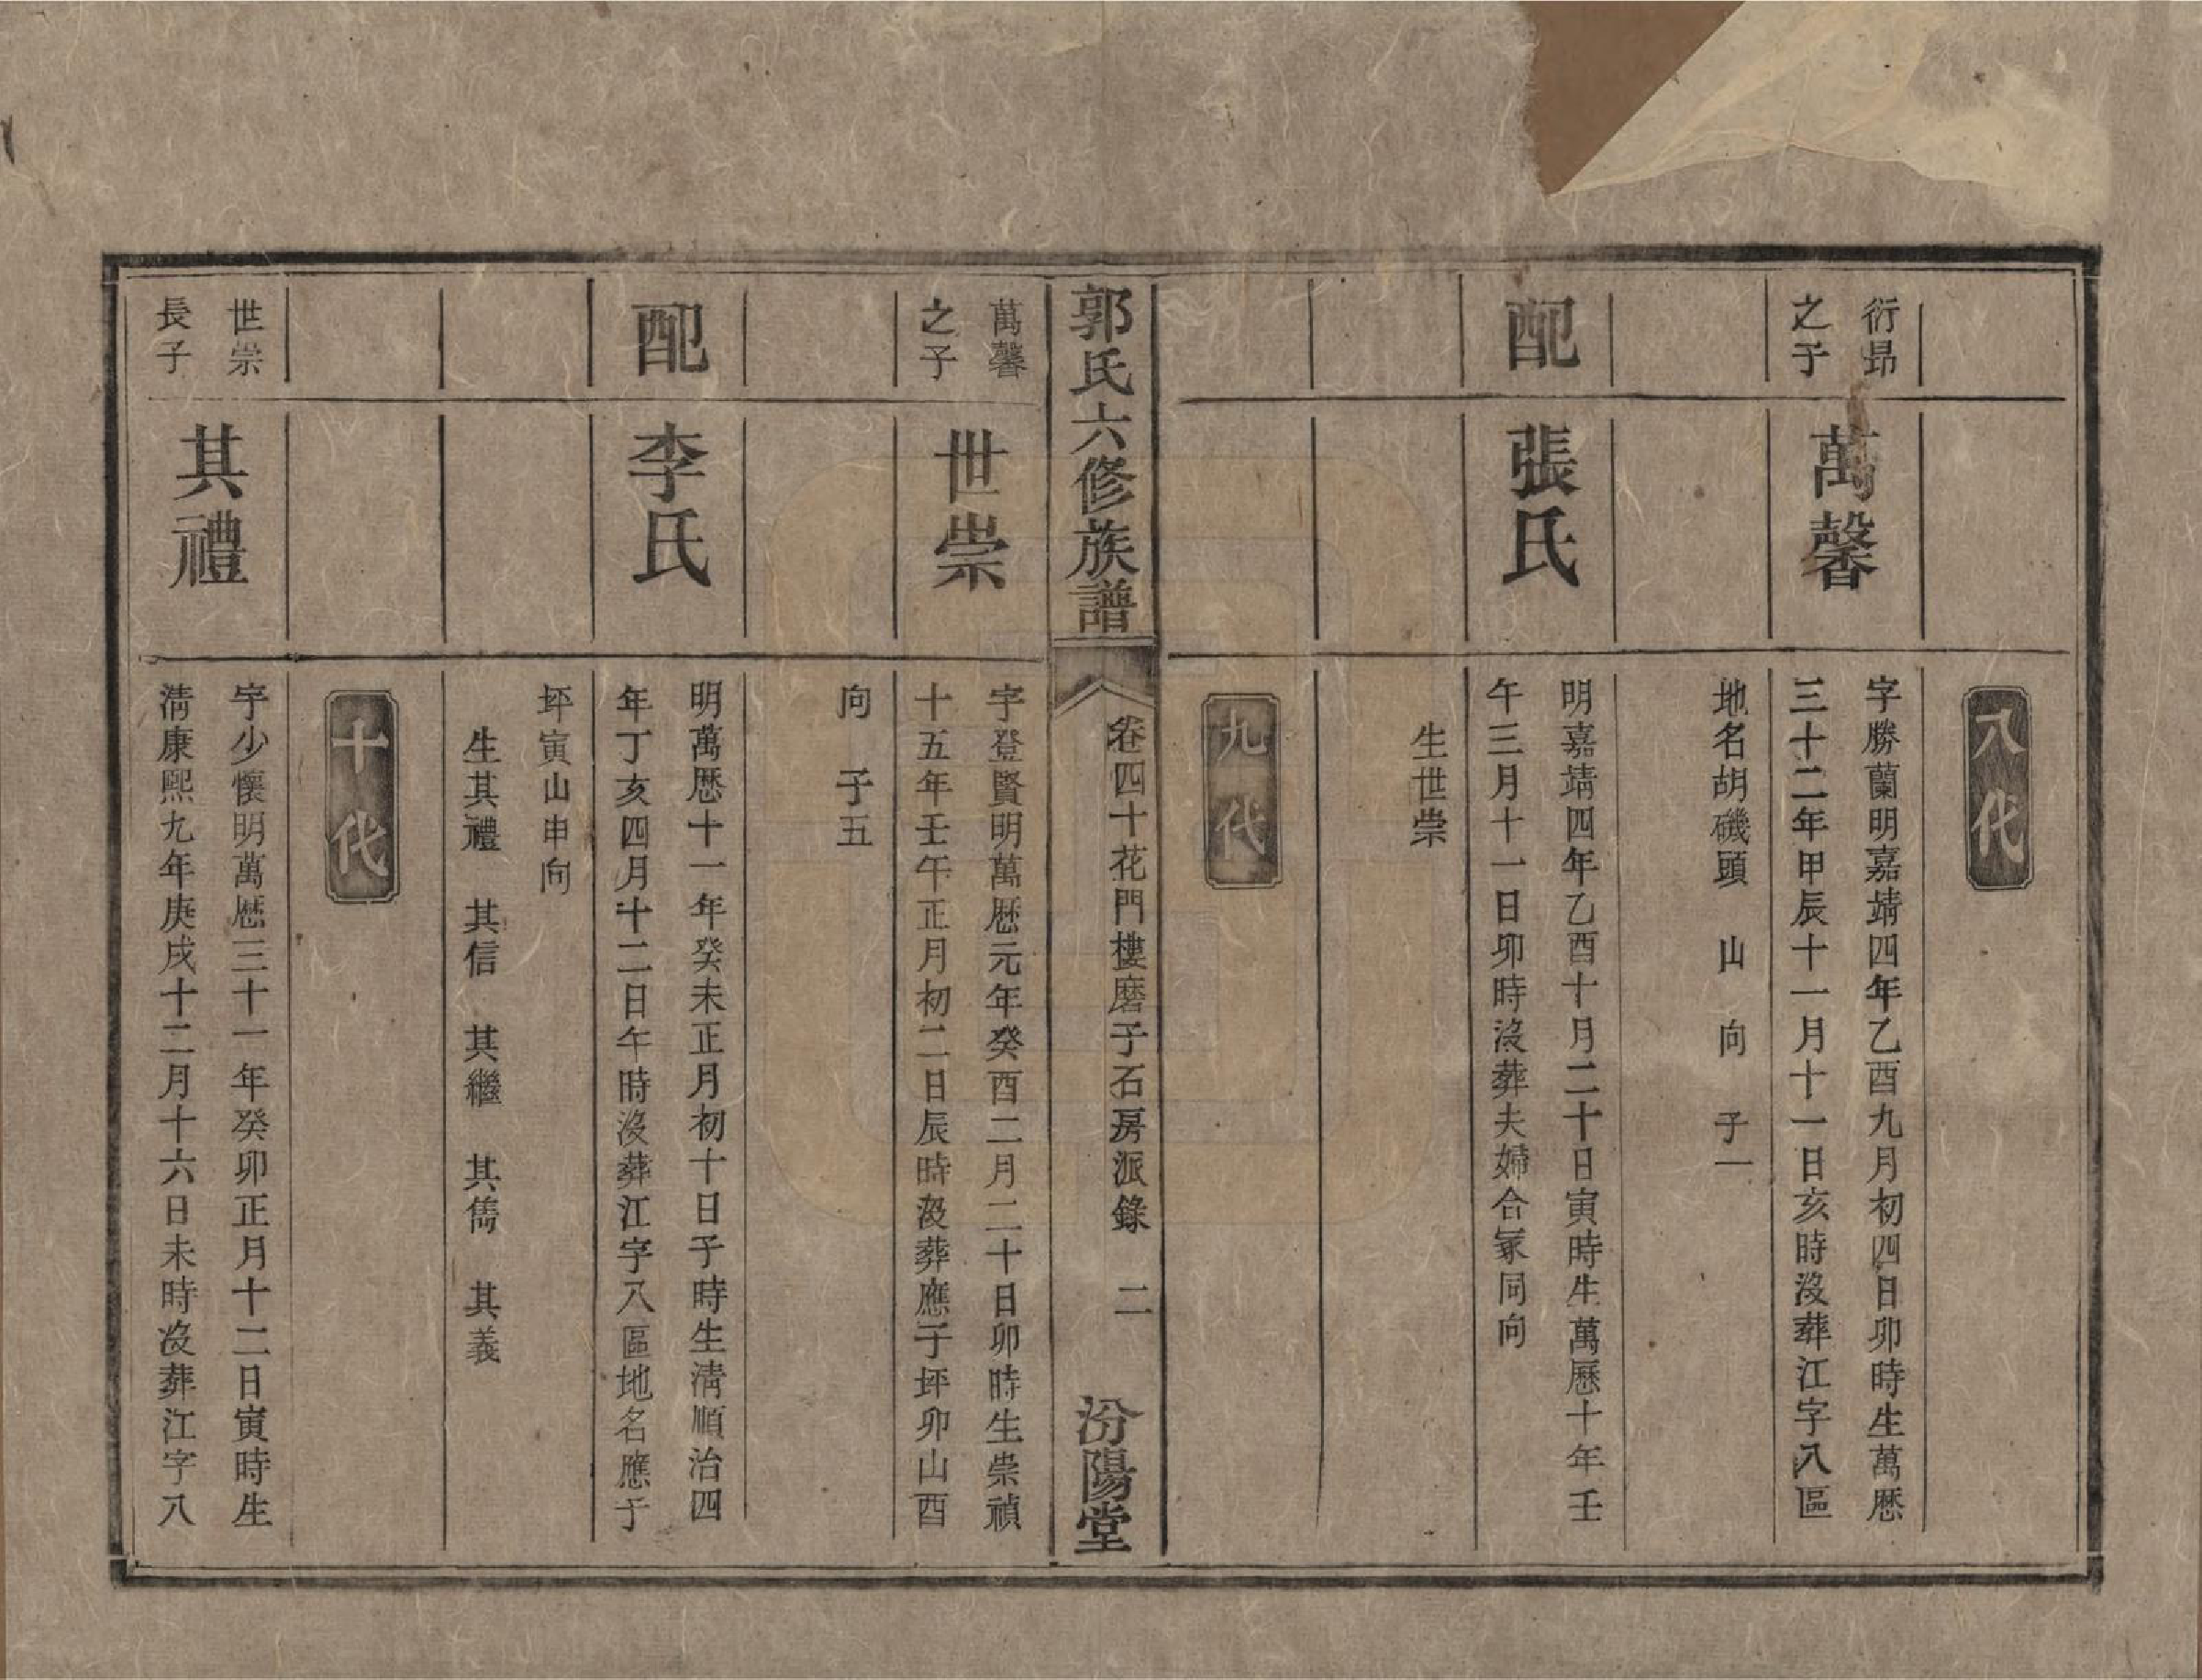 八代
衍昂
之子
萬馨
字勝蘭明嘉靖四年乙酉九月初四日卯時生萬厯
三十二年甲辰十一月十一日亥時沒葬江字八區
地名胡磯頭　山　向　子一
配
張氏
明嘉靖四年乙酉十月二十日寅時生萬歷十年壬
午三月十一日卯時沒葬夫婦合冢同向
生世崇
九代
郭氏六修族譜
卷四十花門樓磨子石房派錄　二
汾陽堂
萬馨
之子
世崇
字登賢明萬厯元年癸酉二月二十日卯時生崇禎
十五年壬午正月初二日辰時沒葬應子坪卯山酉
向　子五
配
李氏
明萬厯十一年癸未正月初十日子時生清順治四
年丁亥四月十二日午時沒葬江字八區地名應子
坪寅山申向
生其禮　其信　其繼　其儁　其義
十代
世崇
長子
其禮
字少懷明萬厯三十一年癸卯正月十二日寅時生
清康熙九年庚戌十二月十六日未時沒葬江字八